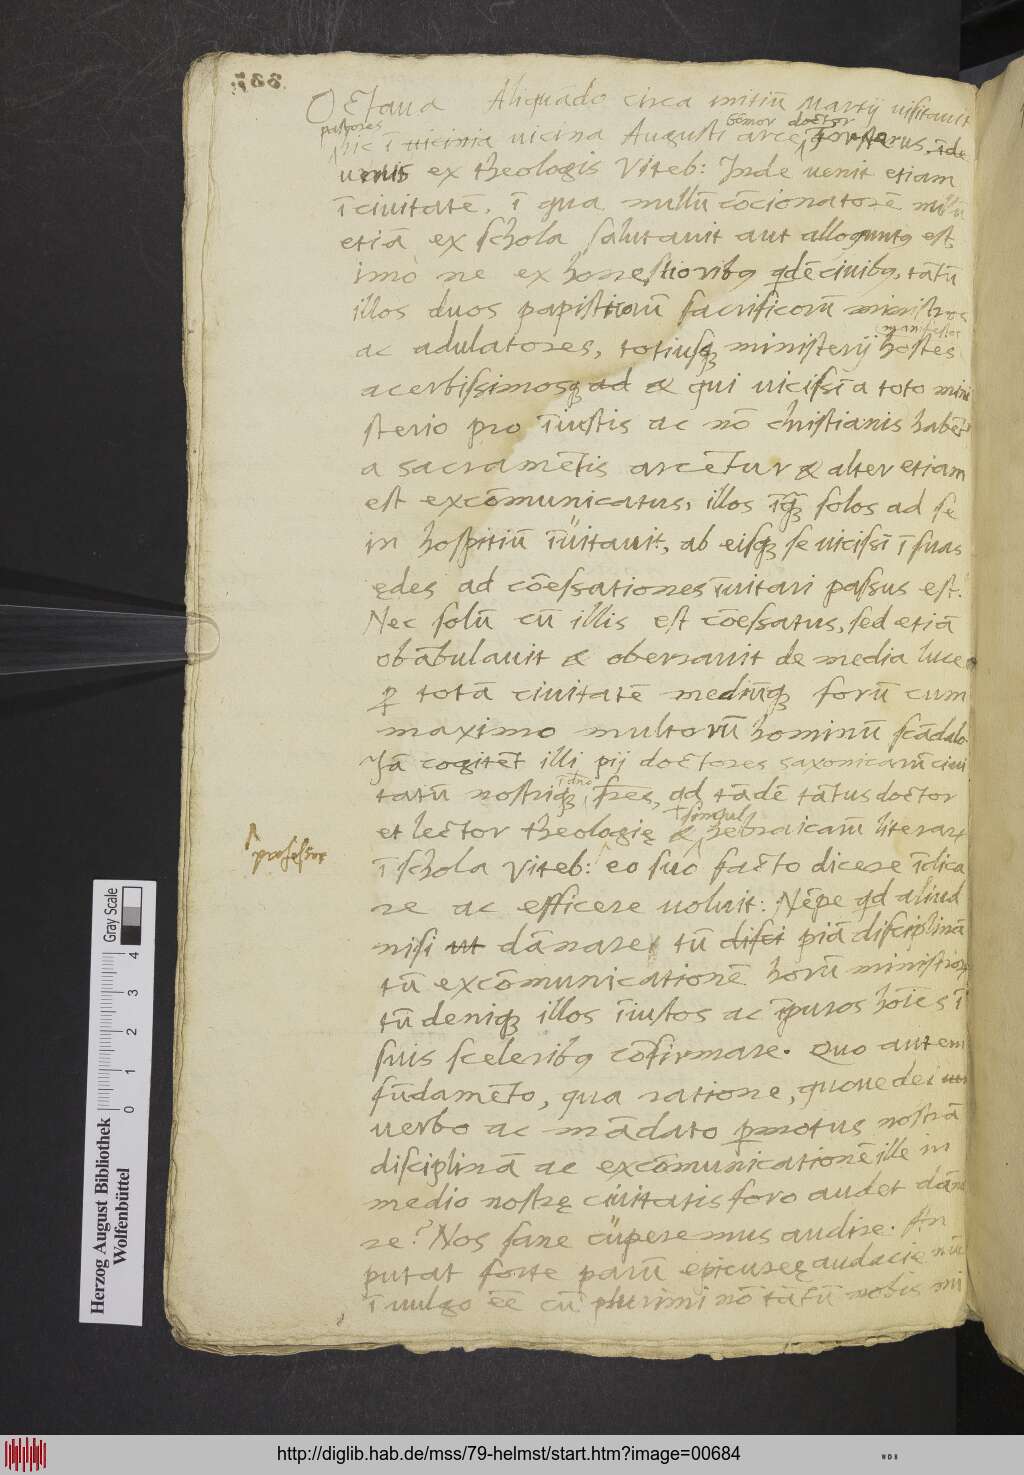 Octaua Aliquādo circa initiū Martij uisitauit
pastores hic ī uicinia uicina Augusti arcē doctor Forsterus īde
uenit ex theologis Viteb: Inde uenit etiam
ī ciuitatē, ī qua nullū cōcionatorē nullū
etiā ex schola salutauit aut alloquutꝰ est,
imò ne ex honestioribꝰ qdē ciuibꝰ, tātū
illos duos papisticorū sacrificorū ministros
ac adulatores, totiusq̨ ministerij manifestos hostes
acerbissimosq̨ ad & qui uicissī a toto mini
sterio pro īiustis ac nō christianis habētr
a sacramētis arcētur & alter etiam
est excōmunicatus, illos īq̨ solos ad se
in hospitiū īuitauit, ab eisq̨ se uicissī ī suas
ędes ad cōessationes īuitari passus est.
Nec solū cū illis est cōessatus, sed etiā
obābulauit & oberrauit de media luce
ꝑ totā ciuitatē mediūq̨ forū cum
maximo multorū hominū scādalo.
Iā cogitēt illi pij doctores saxonicarū ciui
tatū nostriq̨ ī dno fr̄es, qd tādē tātus doctor
et lector theologię & simul hebraicarū literarꝝ
professor
ī schola Viteb: eo suo facto dicere īdica
re ac efficere uoluit: Nēpe qd aliud
nisi ut dānare tū disci piā disciplinā
tū excōmunicationē horū ministrorꝝ
tū deniq̨ illos īiustos ac īpuros hoīes ī
suis sceleribꝰ cōfirmare. Quo autem
fūdamēto, qua ratione, quoue dei
uerbo ac mādato ꝑmotus nostrā
disciplinā ac excōmunicationē ille in
medio nostrę ciuitatis foro audet dāna
re? Nos sane cuperemus audire. An
putat forte parū epicureę audacię nūc
ī uulgo eē cū plurimi nō tātū nobis mi
Herzog August Bibliothek
Wolfenbüttel
Gray Scale
0 1 2 3 4
http://diglib.hab.de/mss/79-helmst/start.htm?image=00684
WDB